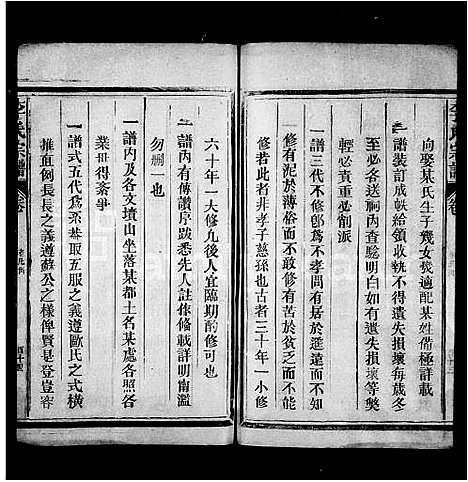 向娶某氏生子幾女幾適配某姓備極詳載
一譜裝訂成帙給領收執不得遺失損壞每歲冬
至必各送祠內查點明白如有遺失損壞等獘
輕必責重必削派
一譜三代不修卽為不孝間有居於遥遠而不知
修有泥於薄俗而不敢修有苦於貧乏而不能
修若此者非孝子慈孫也古者三十年一小修
六十年一大修凡後人宜臨期酌修可也
一譜內有傳讚序跋悉先人註作備載詳明南濫
勿刪一也
一譜內及各文墳山坐落某都土名某處各照各
業世得紊爭
一譜式五代為系葢取五服之義遵歐氏之式橫
推直例長長之義遵蘇公之樣俾賢是登豈容
李氏宗譜
卷